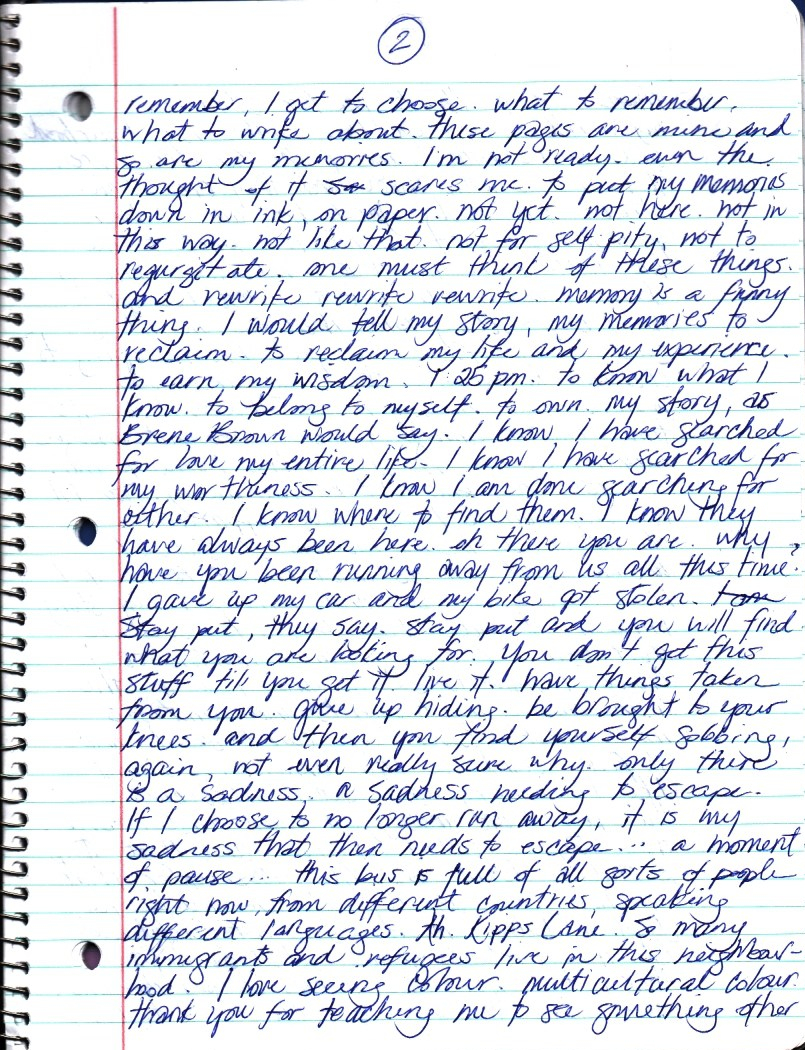 2
remember, I get to choose. what to remember.
what to write about. these pages are mine and
so are my memories. I'm not ready. even the
thought of it scares me. to put my memories
down in ink, on paper. not yet. not here. not in
this way. not like that. not for self pity, not to
regurgitate. one must think of these things.
and rewrite rewrite rewrite. memory is a funny
thing. I would tell my story, my memories to
reclaim. to reclaim my life and my experience.
to earn my wisdom. 1:25 pm. to know what I
know. to belong to myself. to own my story, as
Brene Brown would say. I know I have searched
for love my entire life. I know I have searched for
my worthiness. I know I am done searching for
either. I know where to find them. I know they
have always been here. oh there you are. why
have you been running away from us all this time?
I gave up my car and my bike got stolen.
stay put, they say. stay put and you will find
what you are looking for. you don't get this
stuff till you get it. live it. have things taken
from you. give up hiding. be brought to your
knees. and then you find yourself sobbing,
again, not even really sure why. only there
is a sadness. a sadness needing to escape.
If I choose to no longer run away, it is my
sadness that then needs to escape... a moment
of pause... this bus is full of all sorts of people
right now, from different countries, speaking
different languages. Ah. Kipps Lane. So many
immigrants and refugees live in this neighbour-
hood. I love seeing colour. multicultural colour.
thank you for teaching me to see something other